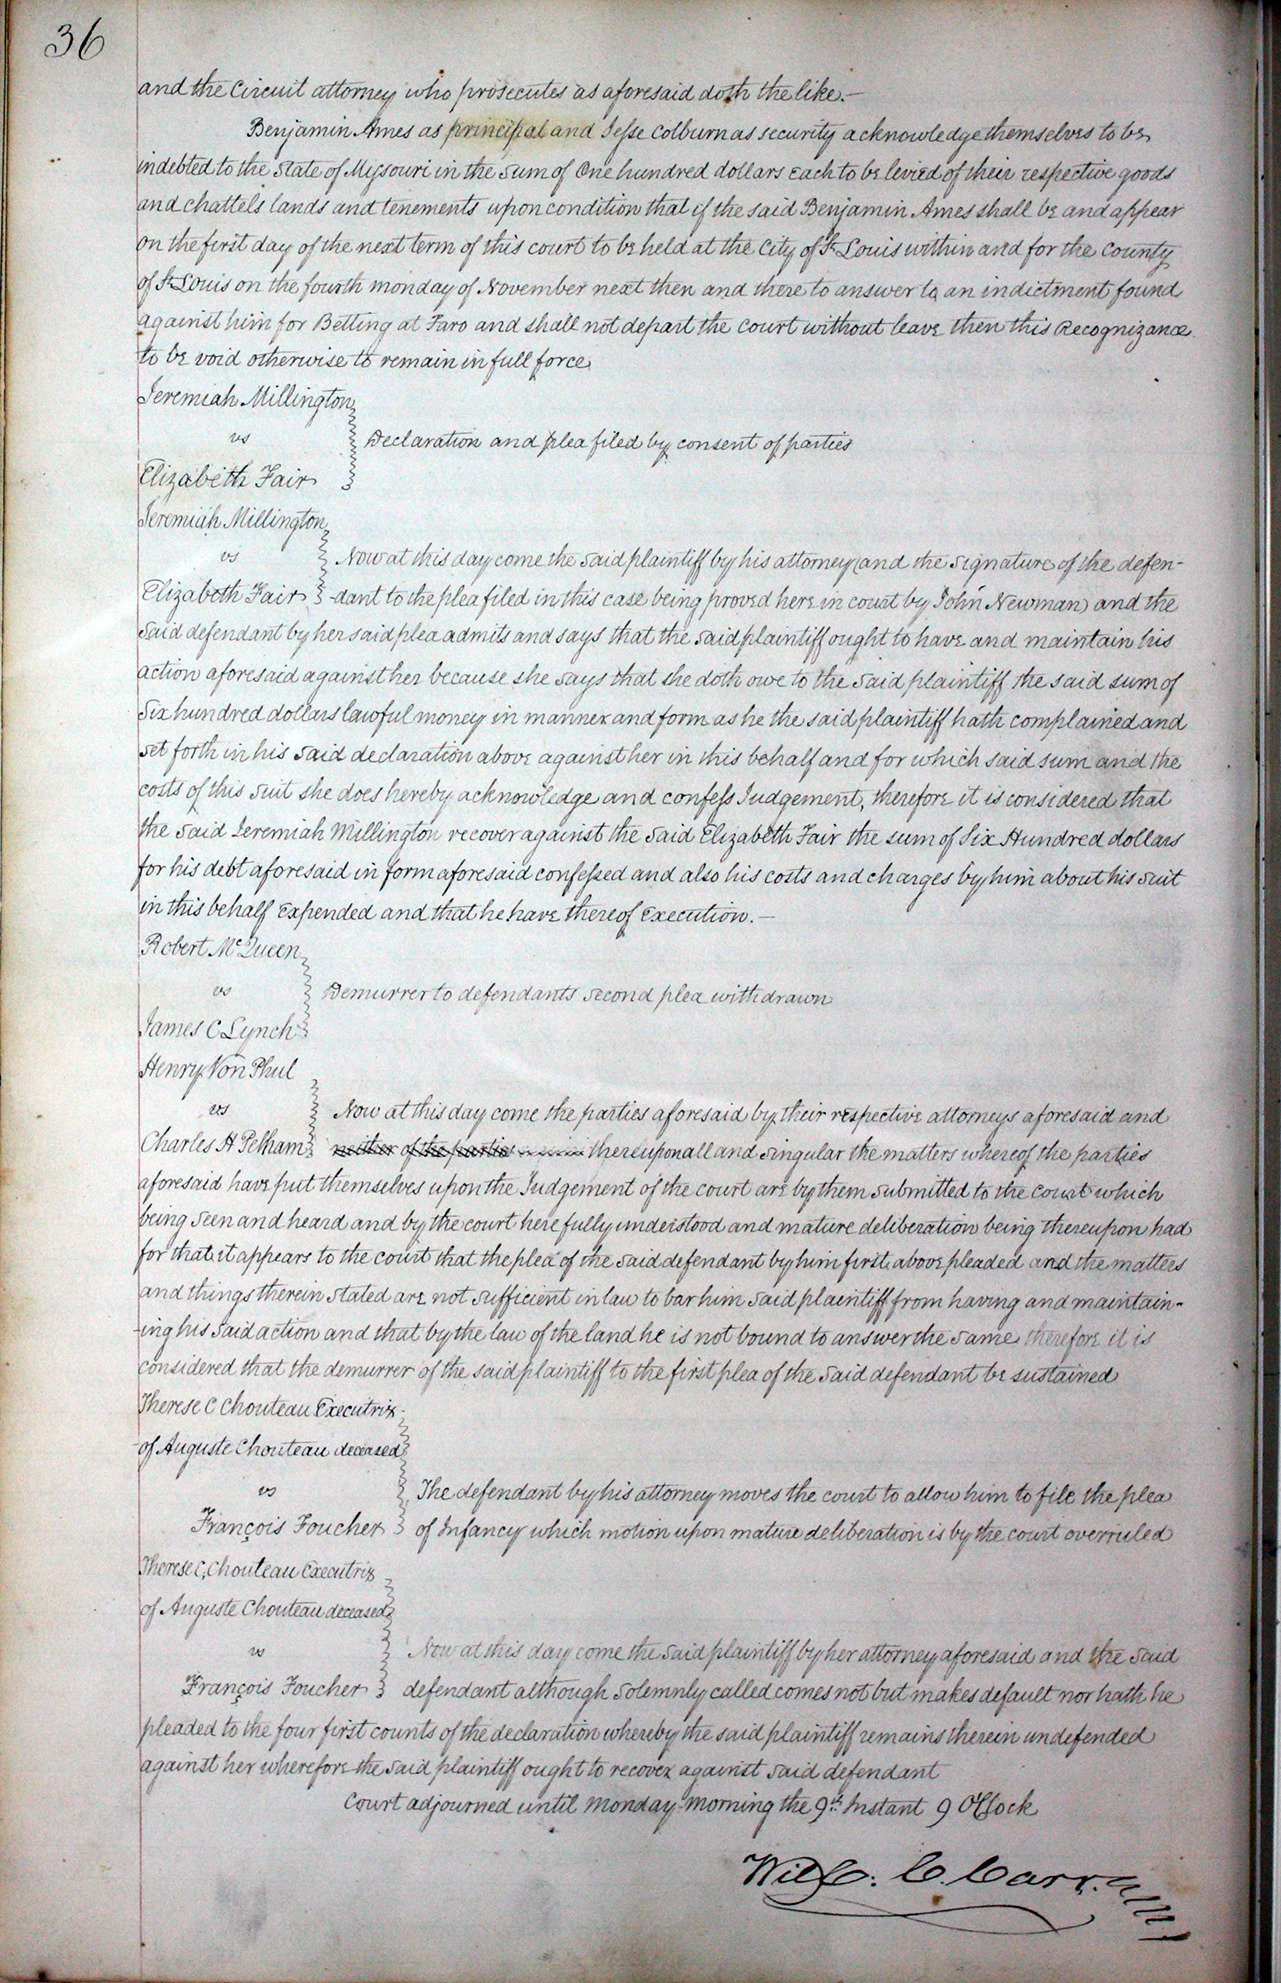 36
and the Circuit attorney who prosecutes as aforesaid doth the like.—
Benjamin Ames as principal and Jesse Colburn as security acknowledge themselves to be
indebted to the State of Missouri in the sum of One hundred dollars each to be levied of their respective goods
and chattels lands and tenements upon condition that if the said Benjamin Ames shall be and appear
on the first day of the next term of this court to be held at the City of St Louis within and for the County
of St Louis on the fourth monday of November next then and there to answer to an indictment found
against him for Betting at Faro and shall not depart the court without leave then this Recognizance
to be void otherwise to remain in full force
Jeremiah Millington
vs
Declaration and plea filed by consent of parties
Elizabeth Fair
Jeremiah Millington
vs Now at this day come the said plaintiff by his attorney (and the signature of the defen-
Elizabeth Fair -dant to the plea filed in this case being proved here in court by John Newman) and the
said defendant by her said plea admits and says that the said plaintiff ought to have and maintain his
action aforesaid against her because she says that she doth owe to the said plaintiff the said sum of
Six hundred dollars lawful money in manner and form as he the said plaintiff hath complained and
set forth in his said declaration above against her in this behalf and for which said sum and the
costs of this suit she does hereby acknowledge and confess Judgement, therefore it is considered that
the said Jeremiah Millington recover against the said Elizabeth Fair the sum of Six Hundred dollars
for his debt aforesaid in form aforesaid confessed and also his costs and charges by him about his suit
in this behalf expended and that he have thereof Execution.—
Robert McQueen
vs Demurrer to defendants second plea withdrawn
James C Lynch
Henry Von Phul
vs Now at this day come the parties aforesaid by their respective attorneys aforesaid and
Charles H Pelham neither of the parties thereupon all and singular the matters whereof the parties
aforesaid have put themselves upon the Judgement of the court are by them submitted to the court which
being seen and heard and by the court here fully understood and mature deliberation being thereupon had
for that it appears to the court that the plea of the said defendant by him first above pleaded and the matters
and things therein stated are not sufficient in law to bar him said plaintiff from having and maintain-
-ing his said action and that by the law of the land he is not bound to answer the same therefore it is
considered that the demurrer of the said plaintiff to the first plea of the said defendant be sustained
Therese C Chouteau Executrix
of Auguste Chouteau deceased
vs The defendant by his attorney moves the court to allow him to file the plea
François Foucher of Infancy which motion upon mature deliberation is by the court overruled
Therese C, Chouteau Executrix
of Auguste Chouteau deceased
vs Now at this day come the said plaintiff by her attorney aforesaid and the said
François Foucher defendant although solemnly called comes not but makes default nor hath he
pleaded to the four first counts of the declaration whereby the said plaintiff remains therein undefended
against her wherefore the said plaintiff ought to recover against said defendant
Court adjourned until Monday morning the 9th Instant 9 OClock
Will: C. Carr.